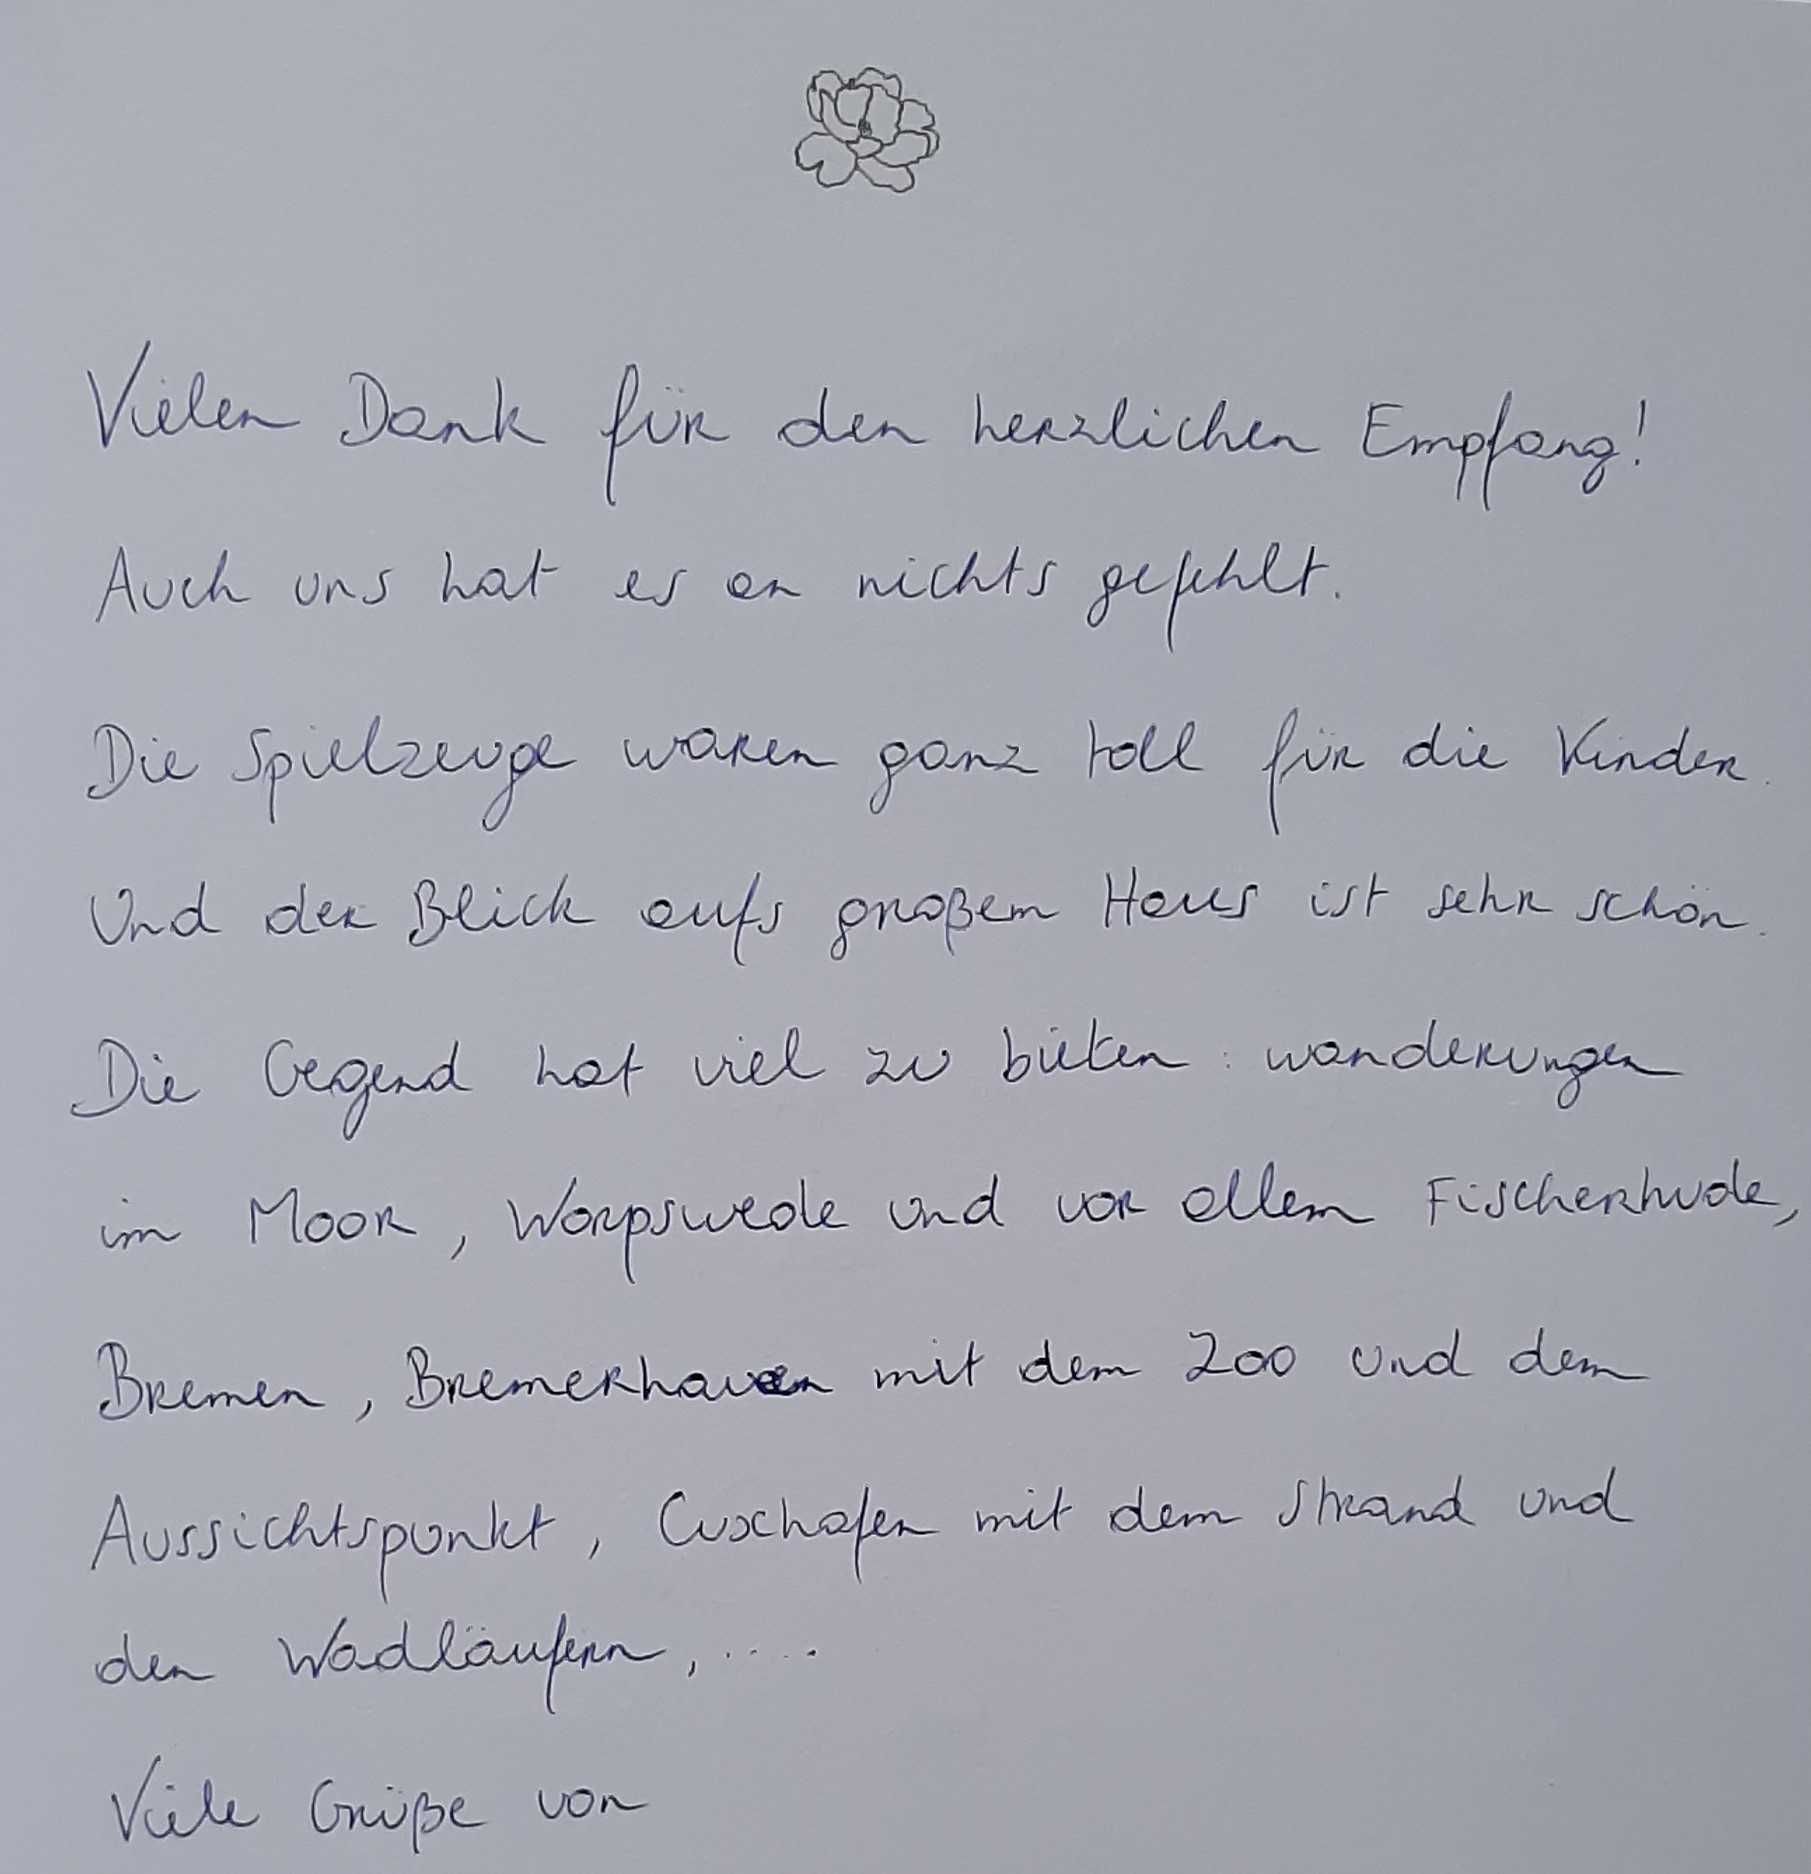 Vielen Dank für den herzlichen Empfang!
Auch uns hat es an nichts gefehlt.
Die Spielzeuge waren ganz toll für die Kinder.
Und der Blick aufs großem Haus ist sehr schön.
Die Gegend hat viel zu bieten : wanderungen
im Moor, Worpswede und vor allem Fischerhude,
Bremen, Bremerhaven mit dem Zoo und dem
Aussichtspunkt, Cuxhafen mit dem Strand und
den Wadläufern, ....
Viele Grüße von